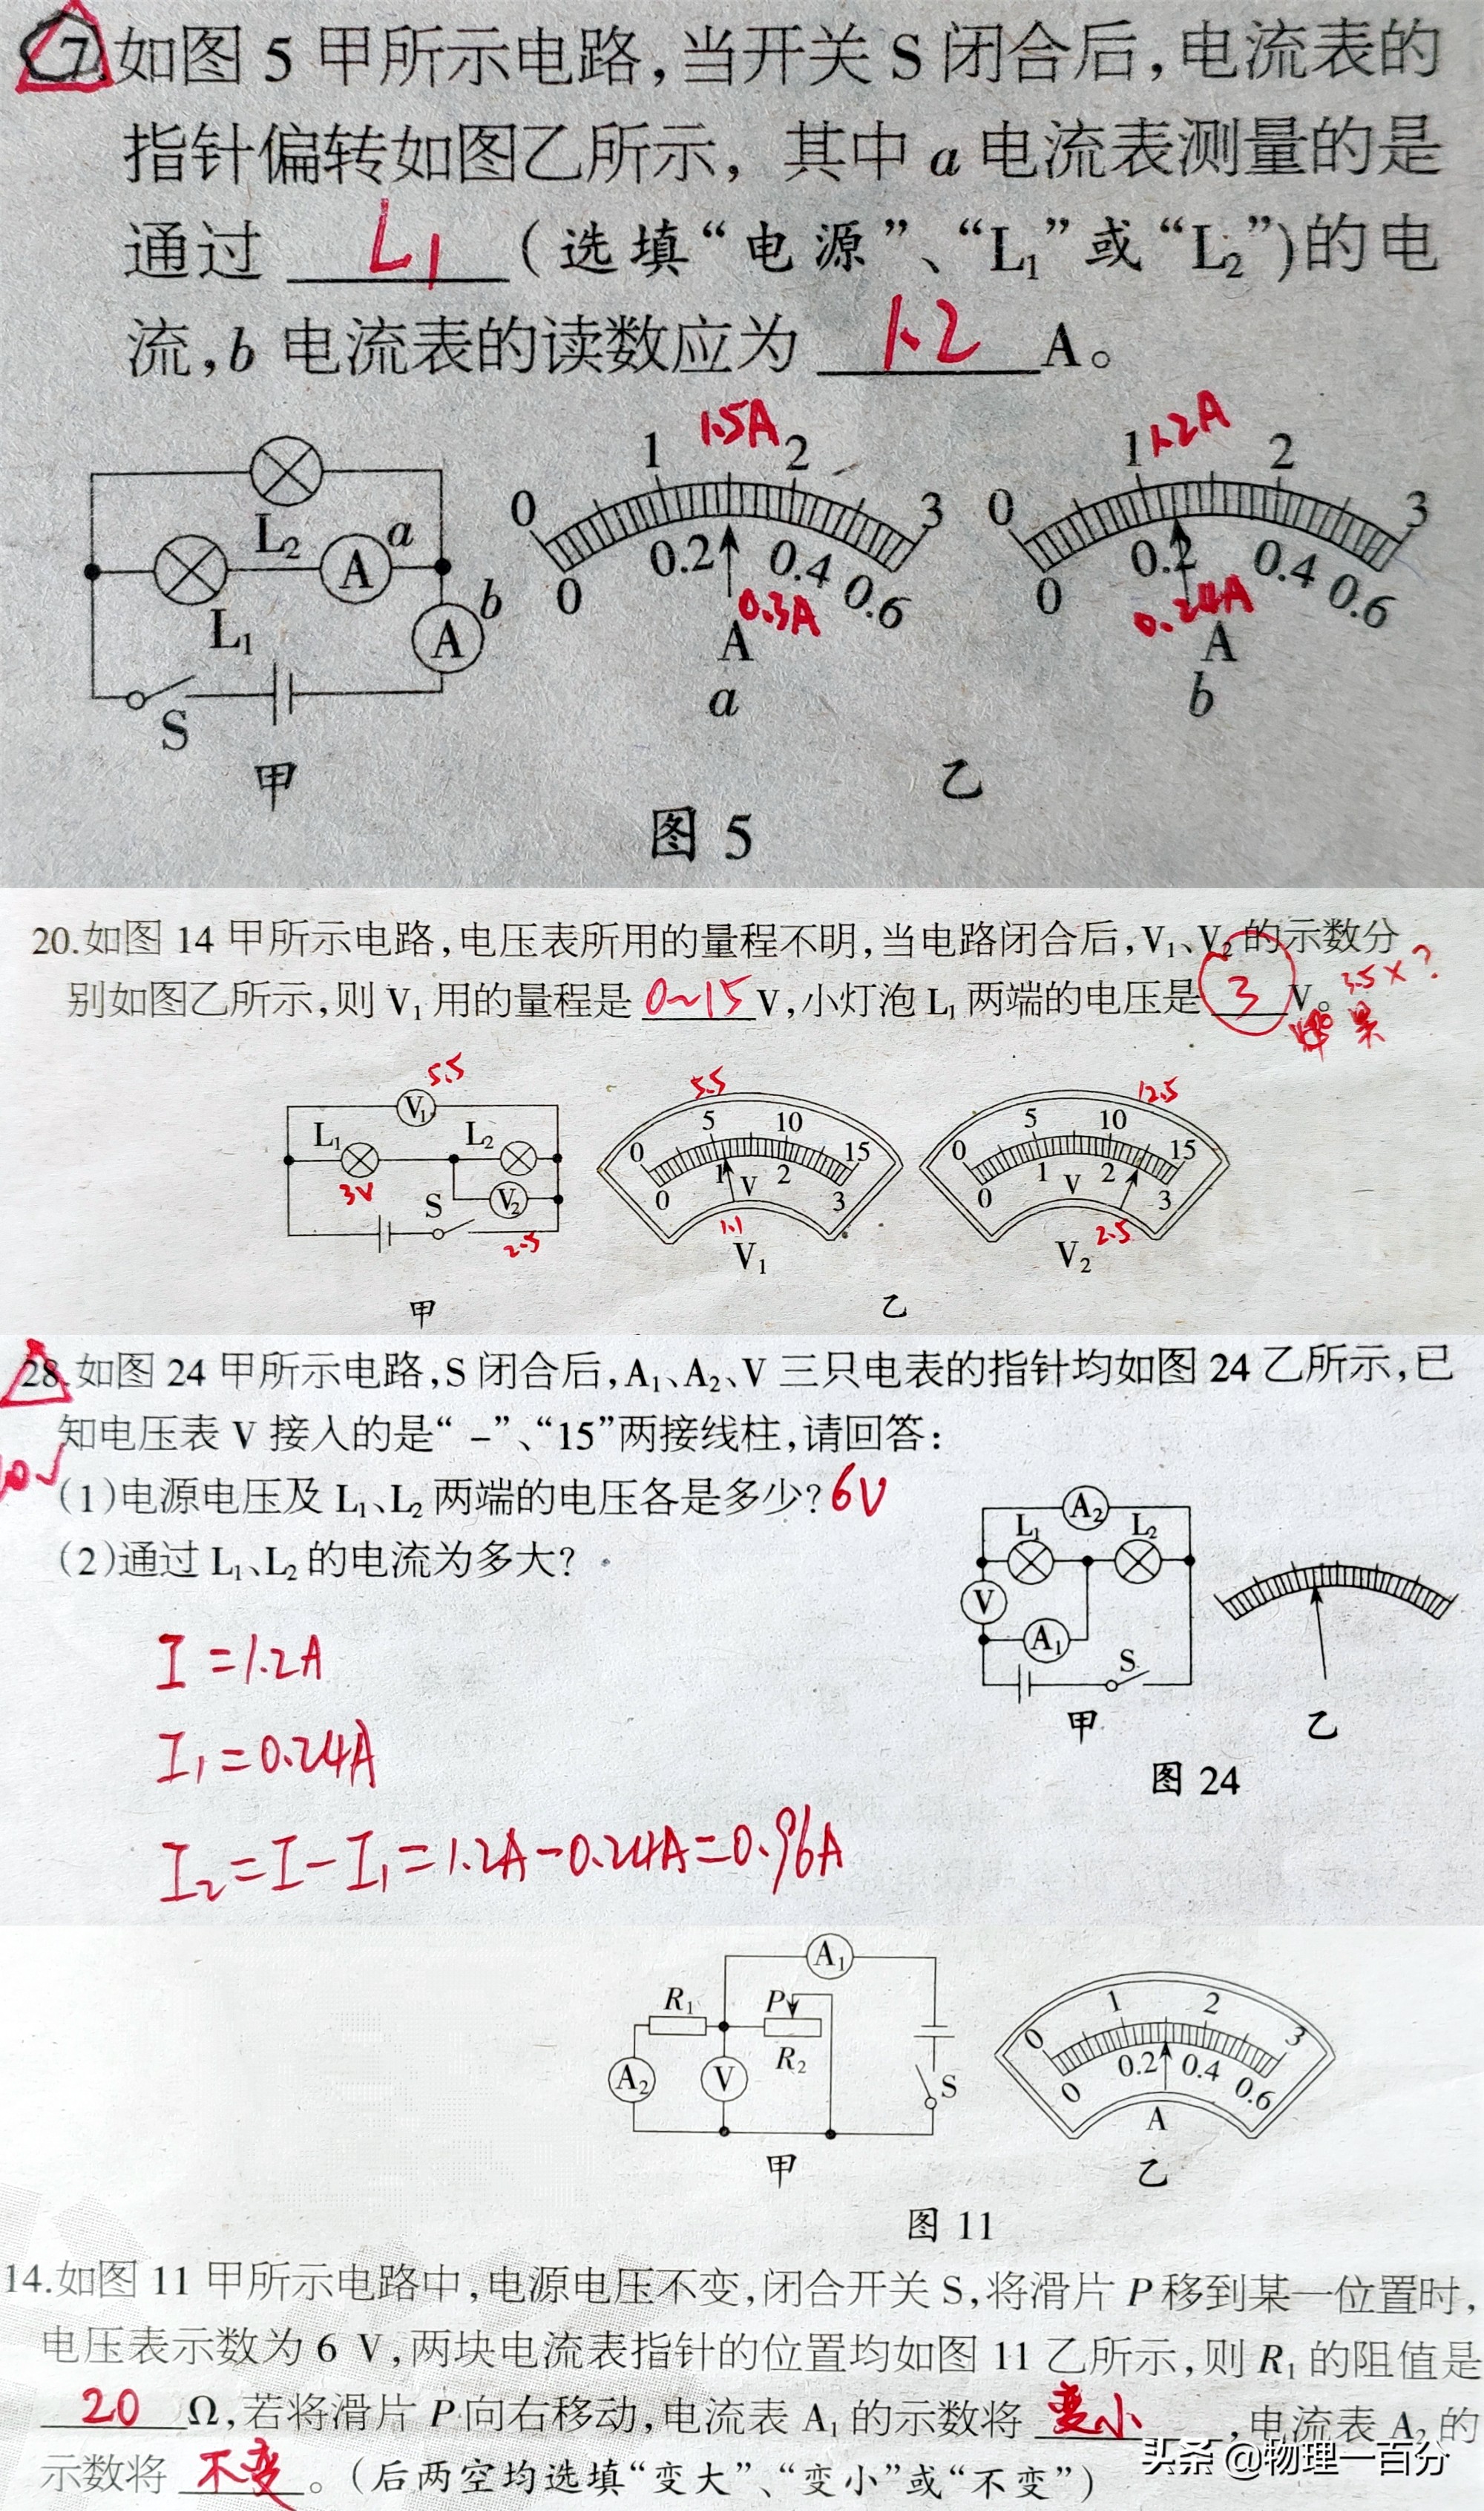 7.如图 5 甲所示电路,当开关 S 闭合后,电流表的
指针偏转如图乙所示, 其中 a 电流表测量的是
通过 L₁ (选填“电源”、“L₁”或“L₂”)的电
流,b 电流表的读数应为 1.2 A。
1.5A
1.2A
0 1 2 3
0 1 2 3
L₂
a
A
L₁
b
A
S
0 0.2 0.4 0.6
0.3A
A
a
0 0.2 0.4 0.6
0.24A
A
b
甲
乙
图 5
20.如图 14 甲所示电路,电压表所用的量程不明,当电路闭合后,V₁、V₂的示数分
别如图乙所示,则 V₁ 用的量程是 0~15 V,小灯泡 L₁ 两端的电压是 3 V。 3.5×?
5.5
V₁
L₁
L₂
3V
S
V₂
2.5
5.5
0 5 10 15
0 1 2 3
V
1.1
V₁
12.5
0 5 10 15
0 1 2 3
V
2.5
V₂
甲
乙
28.如图 24 甲所示电路,S 闭合后,A₁、A₂、V 三只电表的指针均如图 24 乙所示,已
知电压表 V 接入的是“-”、“15”两接线柱,请回答:
(1)电源电压及 L₁、L₂ 两端的电压各是多少? 6V
(2)通过 L₁、L₂ 的电流为多大?
I=1.2A
I₁=0.24A
I₂=I-I₁=1.2A-0.24A=0.96A
A₂
L₁
L₂
V
A₁
S
甲
乙
图 24
A₁
R₁
P
R₂
A₂
V
S
甲
0 1 2 3
0 0.2 0.4 0.6
A
乙
图 11
14.如图 11 甲所示电路中,电源电压不变,闭合开关 S,将滑片 P 移到某一位置时,
电压表示数为 6 V,两块电流表指针的位置均如图 11 乙所示,则 R₁ 的阻值是
20 Ω,若将滑片 P 向右移动,电流表 A₁ 的示数将 变小 ,电流表 A₂ 的
示数将 不变 。(后两空均选填“变大”、“变小”或“不变”)
头条 @物理一百分